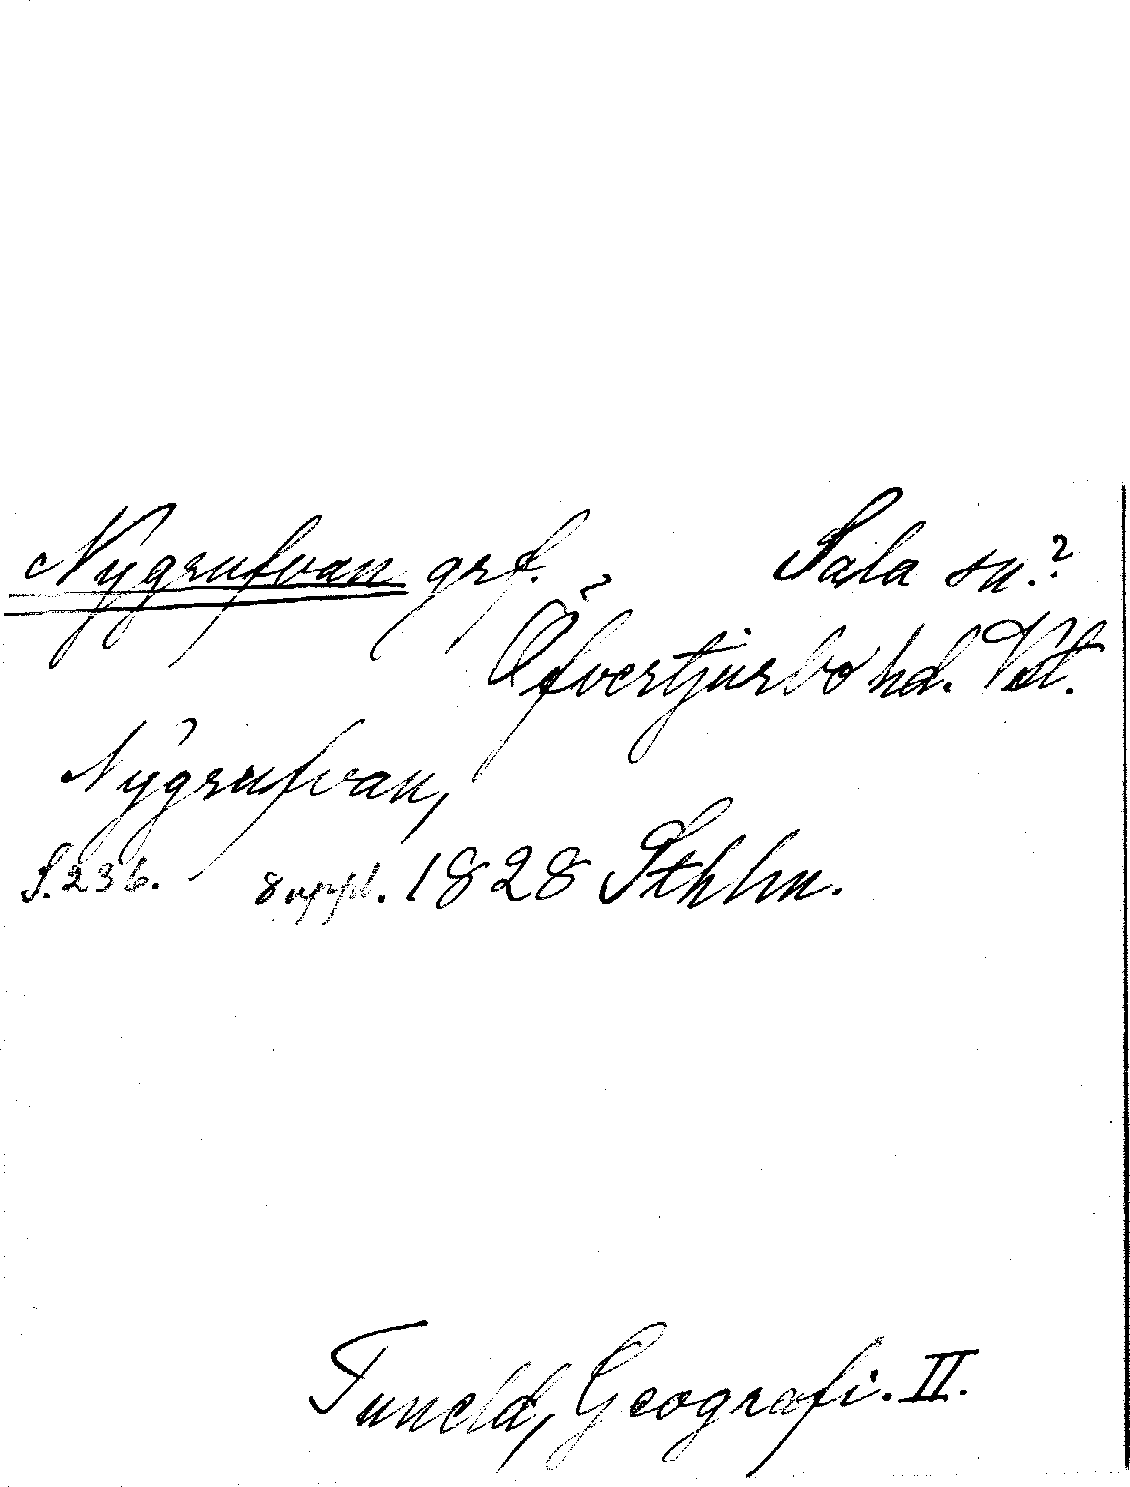 Nygrufvan grf. Sala sn.?
Öfvertjurbo hd. Vstl.
Nygrufvan,
S. 236. 8 uppl. 1828 Sthlm.
Tuneld, Geografi. II.